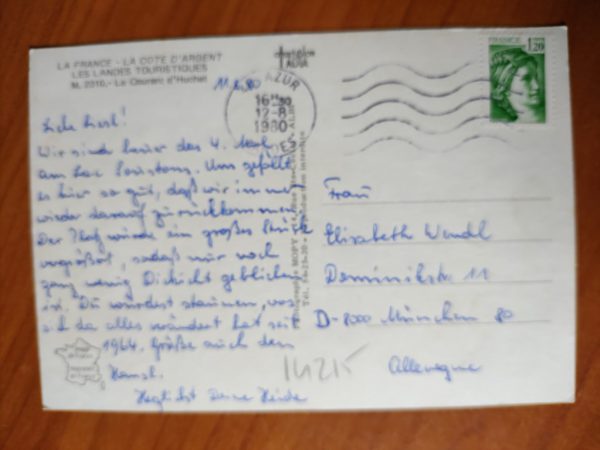 LA FRANCE - LA COTE D'ARGENT
LES LANDES TOURISTIQUES
- Le Courant d'Huchet
11.8.80
AZUR
16H30
12-8
1980
FRANCE 1,20
Wir sind heuer das 4. Mal
am Lac Soustons. Uns gefällt
es hier so gut, daß wir immer
wieder darauf zurückkommen.
Der Platz wurde ein großes Stück
vergrößert, sodaß nur noch
ganz wenig Dickicht geblieben
ist. Du würdest staunen, was
sich da alles verändert hat seit
1964. Grüße auch den
Herzlichst Deine Heide
Frau
Elisabeth Wendl
Dominikstr. 11
D-8000 München 80
Allemagne
14215